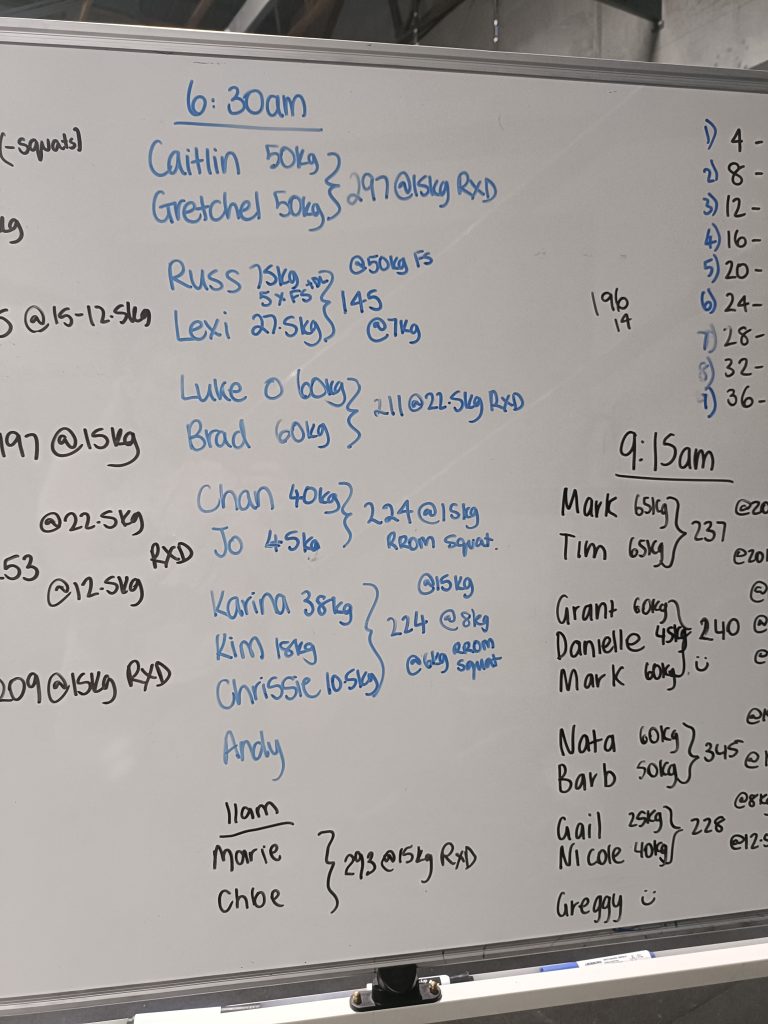 (-squats)
@15-12.5kg
197 @15kg
@22.5kg
RXD
253
@12.5kg
209@15kg RXD
6:30am
Caitlin 50kg
Gretchel 50kg
297@15kg RXD
Russ 75kg
5 x FS +DL
Lexi 27.5kg
@50kg FS
145
@7kg
Luke O 60kg
Brad 60kg
211@22.5kg RXD
Chan 40kg
Jo 45kg
224@15kg
RROM squat.
Karina 38kg
Kim 18kg
Chrissie 10.5kg
@15kg
224 @8kg
@6kg RROM
squat
Andy
11am
Marie
Chloe
293@15kg RXD
196
14
1) 4 -
2) 8 -
3) 12 -
4) 16 -
5) 20 -
6) 24 -
7) 28 -
8) 32 -
36 -
9:15am
Mark 65kg
Tim 65kg
237
Grant 60kg
Danielle 45kg
Mark 60kg
240
Nata 60kg
Barb 50kg
345
Gail 25kg
Nicole 40kg
228
@8k
@12.5
Greggy